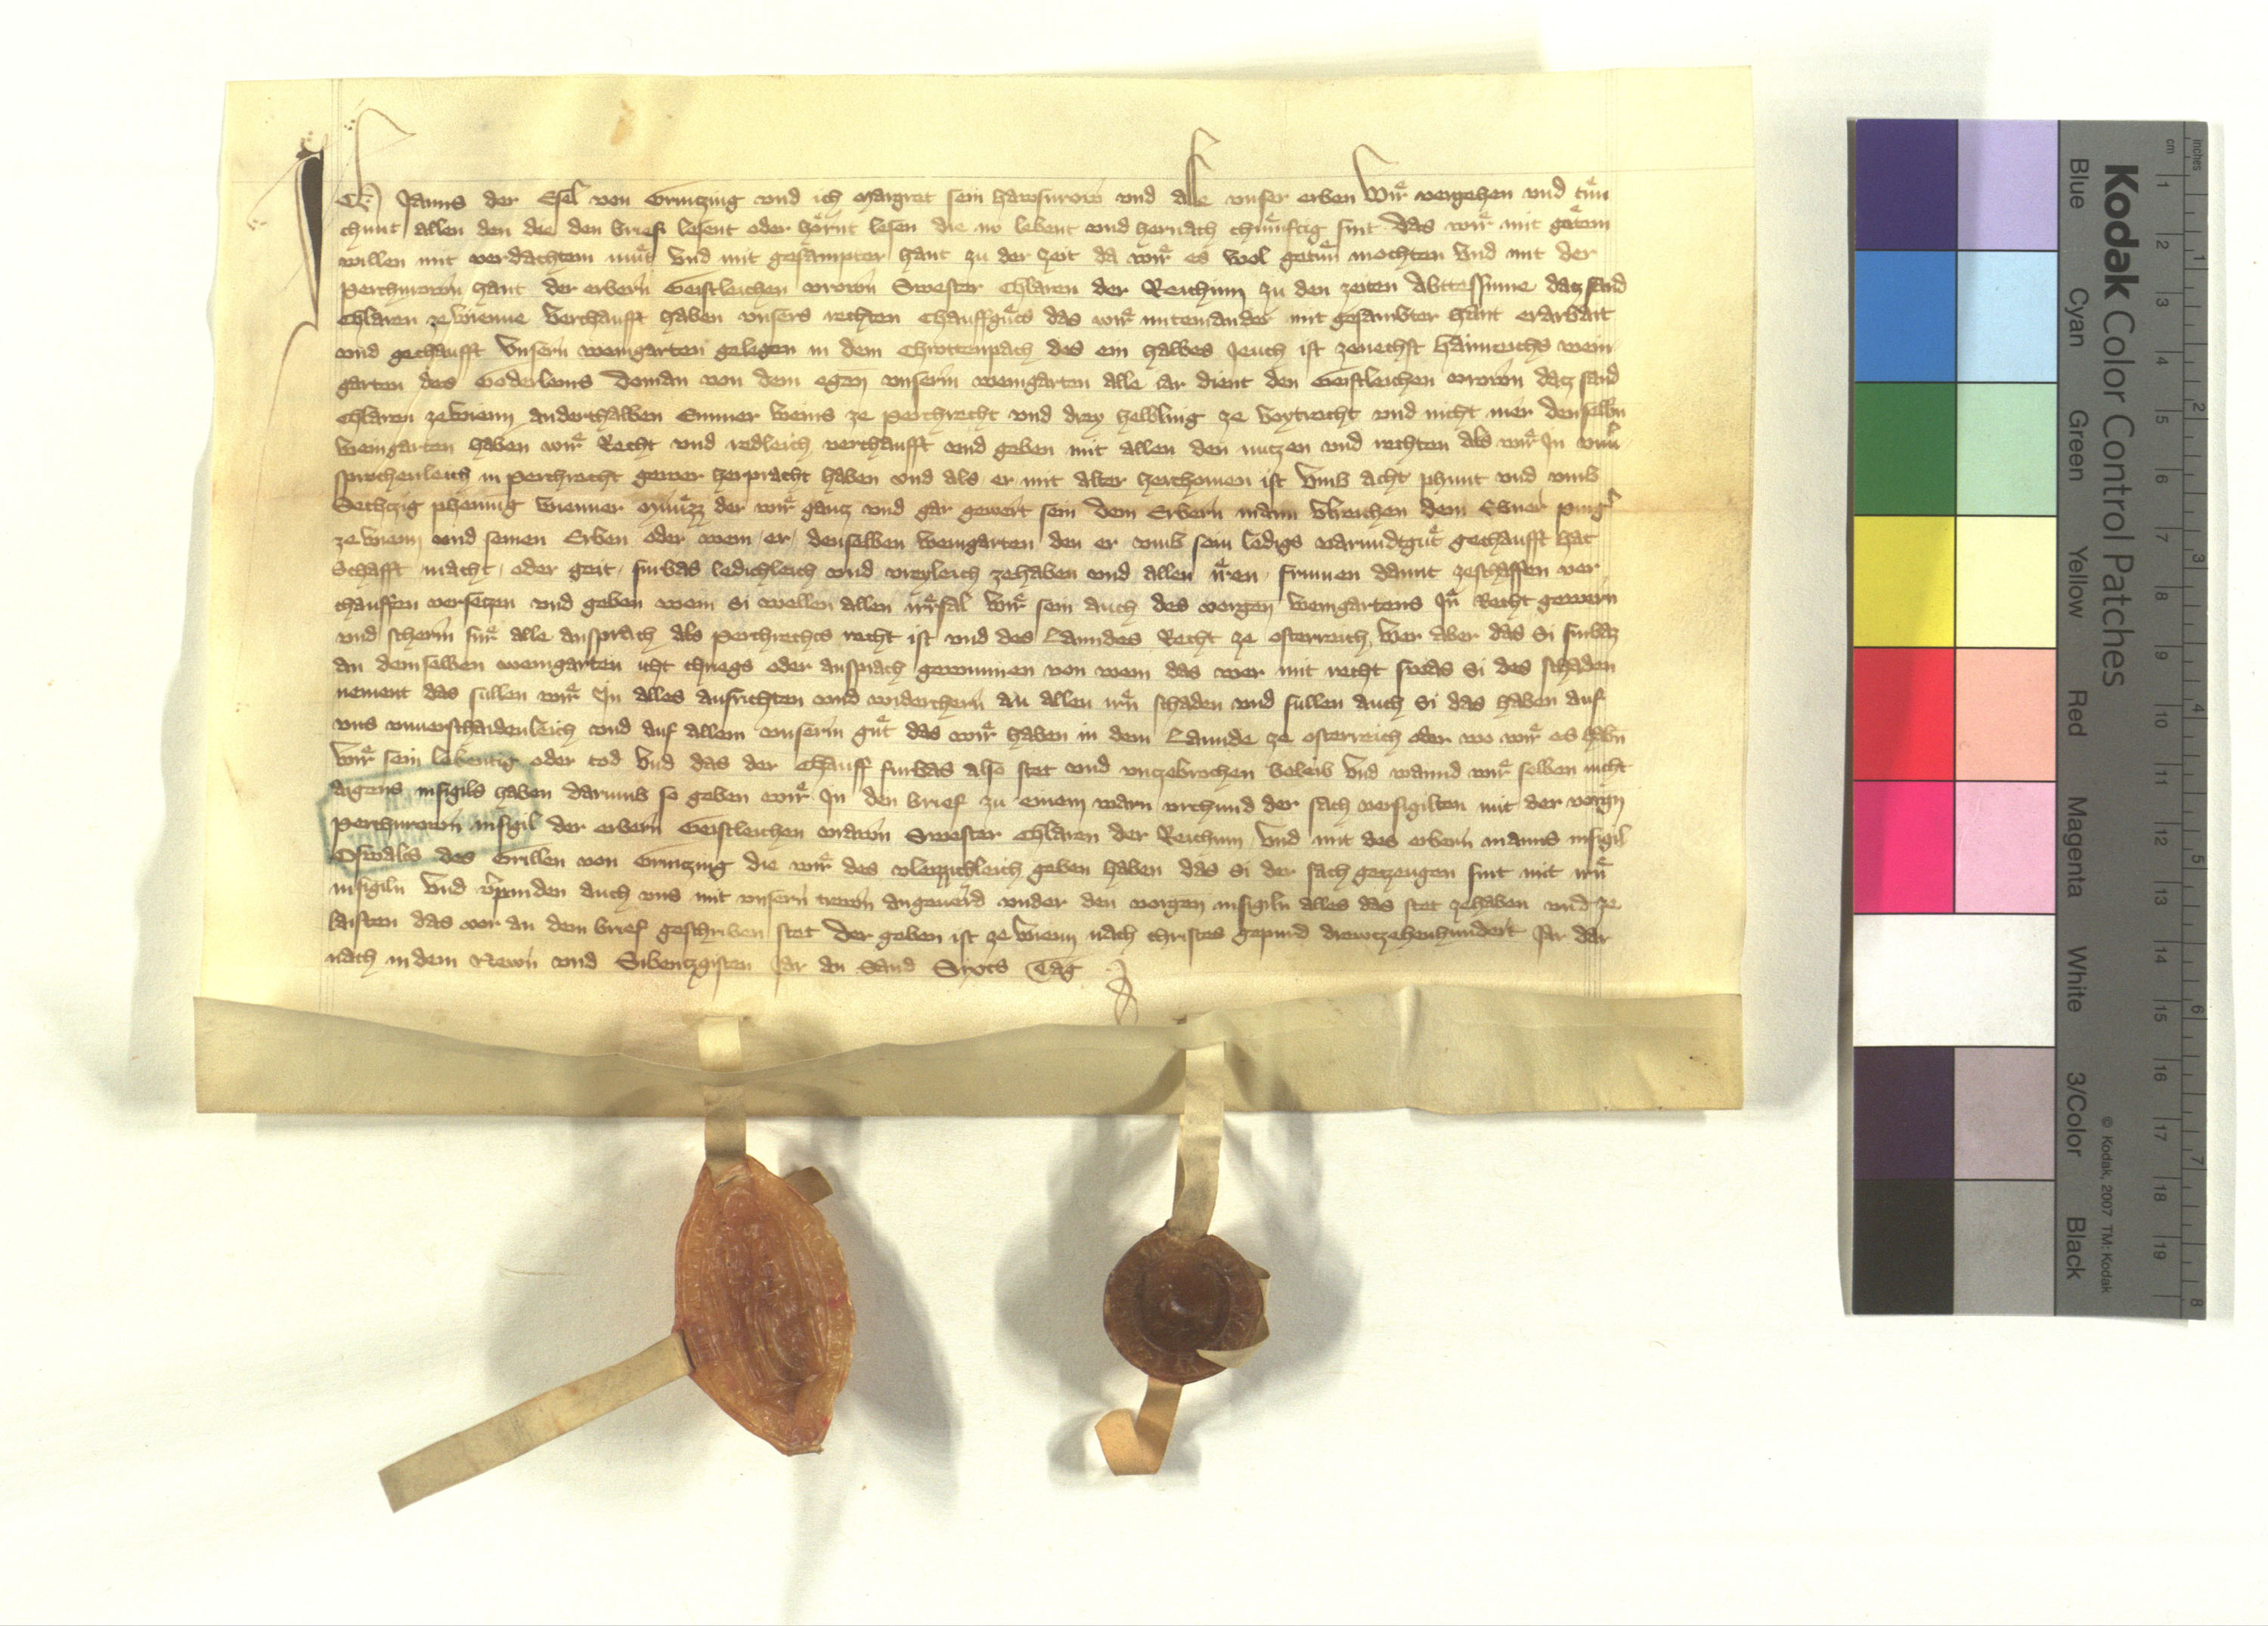 Ich Janns der Esel von Grintzing vnd ich Margret sein hawsvrow vnd alle vnser erben Wir vergehen vnd tůn
chunt allen den die den brief lesent oder hörnt lesen die nv lebent vnd hernach chůnftig sint das wir mit gůtem
willen mit verdachtem můt vnd mit gesampter hant zu der zeit da wir es wol getůn mochten Vnd mit der
Perchvrown hant der erbern Geistleichen vrown Swester Chlaren der Reichinn zu den zeiten Abttessinne datz sand
Chlaren ze Wienne verchaufft haben vnsers rechten Chauffgůts das wir miteinander mit gesambter hant erarbait
vnd gechaufft Vnsern weingarten gelegen in dem Chrottenpach des ein halbes Jeuch ist zenechst Hainreichs wein
garten des Goderleins doman von dem egen vnserm weingarten alle iar dient den Geistleichen vrown datz sand
Chlaren ze Wienn anderthalben Emmer weins ze perchrecht vnd drey helbling ze voytrecht vnd nicht mer denselbn
Weingarten haben wir Recht vnd redleich verchaufft vnd geben mit allen den nutzen vnd rechten als wir In vnu
sprochenleich in perchrecht gewer herpracht haben vnd als er mit alter herchomen ist Vmb acht phunt vnd vmb
Sechtzig phening wienner Můnzz der wir gantz vnd gar gewert sein dem Erbern mann Vlreichen dem Ebner purger
ze Wienn vnd seinen Erben oder wem er denselben weingarten den er vmb sein ledigs varundtgůt gechaufft hat
Schafft macht oder geit furbas ledichleich vnd vreyleich zehaben vnd allen iren frumen damit zeschaffen ver
chauffen versetzen vnd geben wem si wellen allen irrsal Wir sein auch des vorgen weingartens Ir Recht gewern
vnd scherm fur alle ansprach als perchrechts recht ist vnd des Lanndes Recht ze osterreich Wer aber das si furbaz
an demselben weingarten icht chriegs oder ansprach gewunnen von wem das wer mit recht swas si des schaden
nement das sullen wir In alles ausrichten vnd widerchern an allen irn schaden vnd sullen auch si das haben auf
vns vnuerschaidenleich vnd auf allem vnserm gůt das wir haben in dem Lannde ze osterreich oder wo wir es habn
wir sein lebentig oder tod Vnd das der Chauff furbas also stet vnd vnzebrochen beleib Vnd wannd wir selben nicht
aigens insigils haben darumb so geben wir In den brief zu einem warn vrchund der sach versigilten mit der vorgn
Perchvrown insigil der erbern Geistleichen vrawn Swester Chlaren der Reichinn Vnd mit des erbern manns insigil
Oswalts des Grillen von Grintzing die wir des vleizzichleich geben haben das si der sach getzeugen sint mit irn
insigiln Vnd verpinden auch vns mit vnsern trewn angeuerd vnder den vorgen insigiln alles das stet zehaben vnd ze
laisten das vor an dem brief geschriben stet Der geben ist ze Wienn nach christes gepurd drewtzehenhundert Jar dar
nach in dem Newn vnd Sibentzgisten Jar an Sand Sixts Tag
Kodak Color Control Patches
Blue Cyan Green Yellow Red Magenta White 3/Color Black
© Kodak, 2007 TM: Kodak
cm 1 2 3 4 5 6 7 8 9 10 11 12 13 14 15 16 17 18 19
inches 1 2 3 4 5 6 7 8